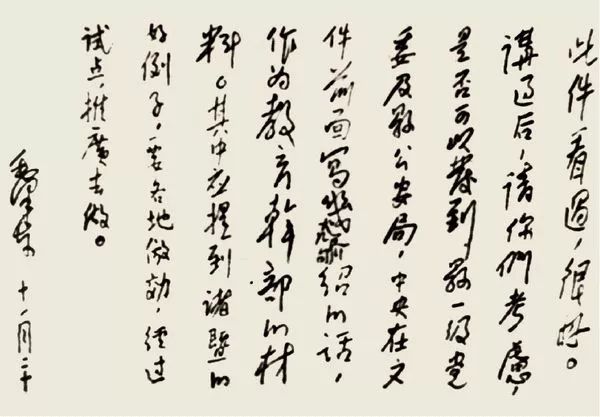 此件看過，很好。
講过后，請你們考慮，
是否可以發到縣一级党
委及縣公安局，中央在文
件前面寫几句介紹的話，
作为教育幹部的材
料。其中应提到諸暨的
好例子，要各地倣効，經过
試点，推廣去做。
毛泽东 十一月二十